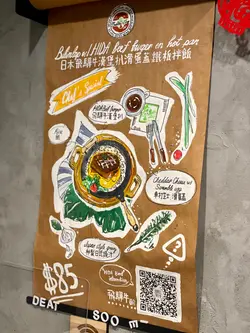 Bibimbap w/ HIDA Beef burger in hot pan
日本飛驒牛漢堡扒滑蛋蓋鐵板拌飯
Chef's Special
HIDA Beef burger
飛驒牛漢堡扒
Cheddar Cheese w/
Scramble egg
車打芝士滑蛋
Japan style gravy
HIDA Beef
飛驒牛
$85
DEAT SOO E